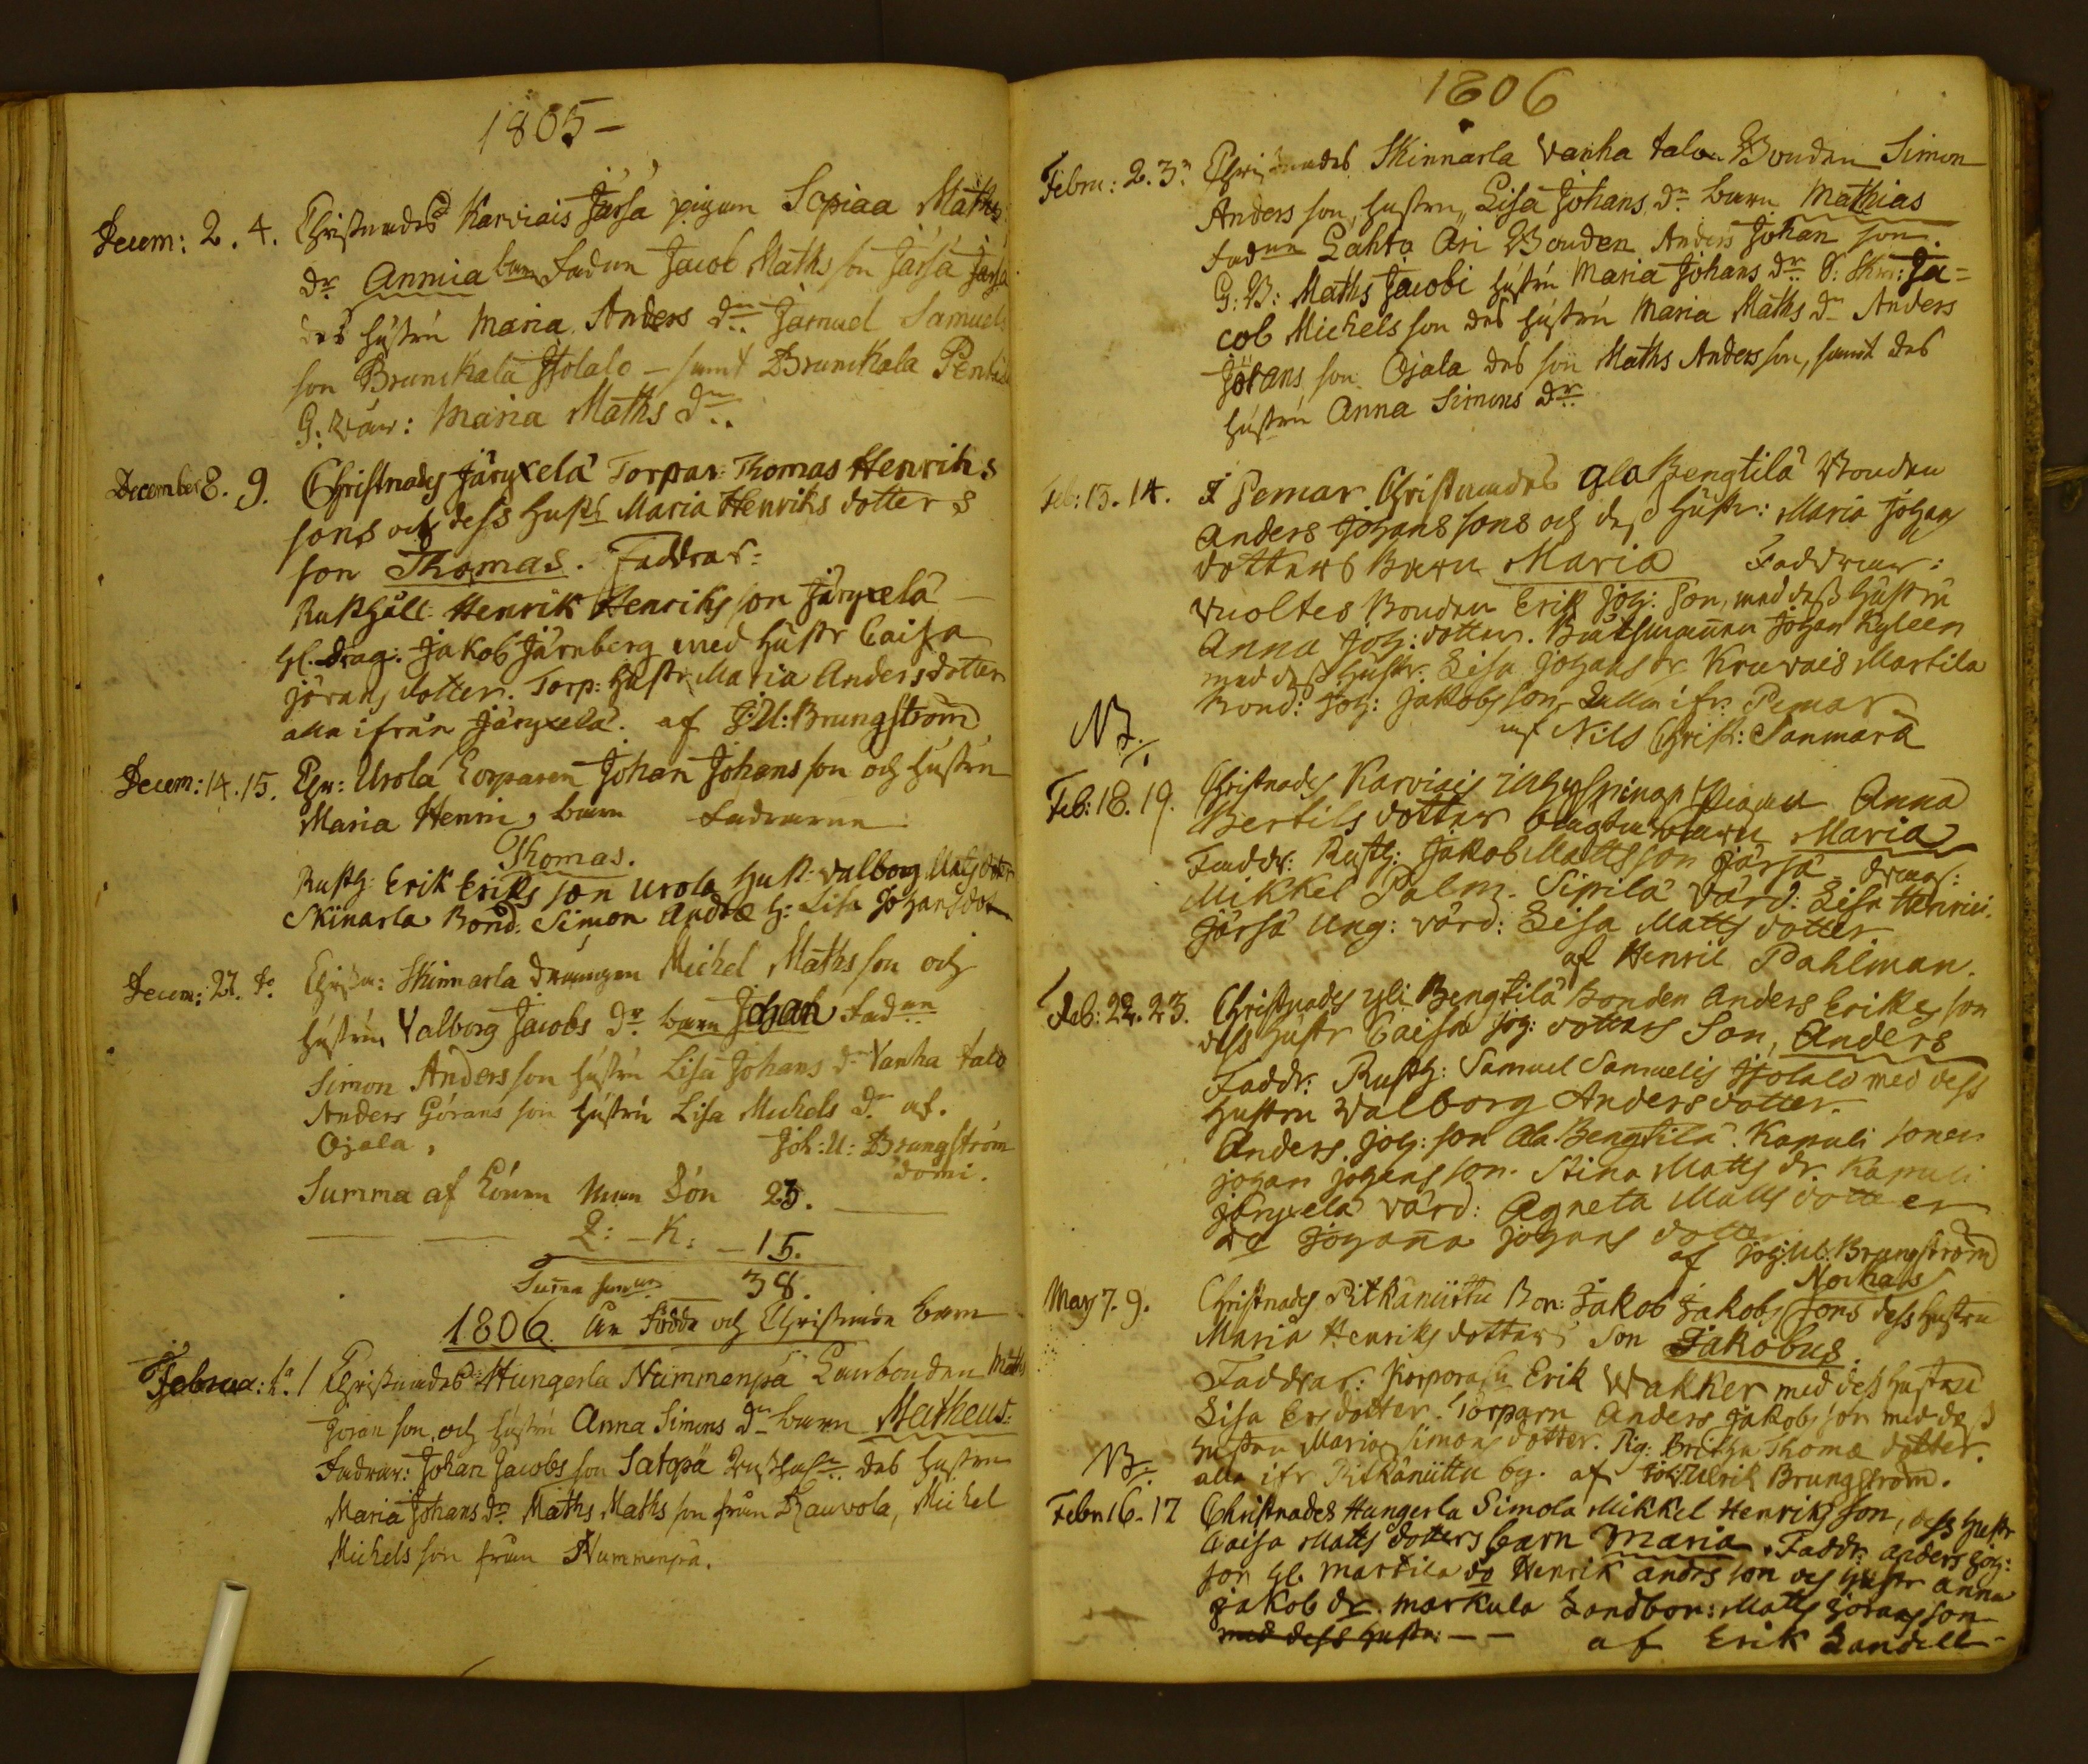 1805 –
Decem: 2. 4. Christnades Karviais Järsä pigan Sopiaa Maths
dr Annia barn Fadren Jacob Maths son Järsä Järsä
des hustru Maria Anders dr Samuel Samuels
son Brunikala Jsotalo – samt Brunikala Pentilä
G: Maria Maths dr
December 8. 9. Christnades Järyxelä Torpar: Thomas Henriks
sons och dess Hust: Maria Henriks dotters
son Thomas. Faddrar:
Rusthåll: Henrik Henriks son Järyxelä –
drag: Jakob Järnberg med Hustr Caisa
jörans dotter. Torp: Hustr Maria Andersdotter
alla ifrån Järyxelä. af J:U: Brungström
Decem: 14. 15. Chr: Urola Torparen Johan Johans son och hustru
Maria Henri, barn Fadrarne
Thomas.
Rusth: Erik Eriks son Urola Hust: Valborg Mats dotter
Skinarla Bond: Simon Andræ h: Lisa Johansdot
Decem: 27. do Christn: Skinnarla drängen Michel Maths son och
hustrun Valborg Jacobs dr barn Johan Fadren
Simon Anders son hustru Lisa Johans dr Vanha talo
Anders Görans son hustru Lisa Michels dr af.
Ojala, Joh: U: Brungström
domi.
Summa af Könen Man Kön 23.
Q: – K: – 15.
Summa 38.
1806. År Födde och Christnade barn
Februa: 1. 1 Christnades Hungerla Nummenpä Lanbonden Maths
Göran son, och hustru Anna Simons dr barn Matheus:
Fadrar: Johan Jacobs son Satopä des hustru
Maria Johans dr Maths Maths son från Rauvola, Michel
Michels son från Nummenpä.
1806
Febru: 2. 3. Christnades Skinnarla Vanha talo Bonden Simon
Anders son, hustru, Lisa Johans dr barn Mathias
Fadren Lahto Ari Bonden Anders Johan son.
G: B: Maths Jacobi hustru Maria Johans dr S: Skr: Ja=
cob Michels son des hustru Maria Maths dr Anders
Jörans son Ojala des son Maths Anders son, samt des
hustru Anna Simons dr
Feb: 13. 14. I Pemar Christnades Ala Bengtilä Bonden
Anders Johans sons och dess Hustr: Maria Johans
dotters Barn Maria Faddrar:
Vuoltes Bonden Erik Joh: Son, med dess Hustru
Anna Joh: dotter. Båtsmannen Johan Kyleen
med dess Hustr. Lisa Johans dr Kruvais Martila
Bond: Joh: Jakobs son, alla ifr: Pemar
af Nils Christ: Sanmark
NB.
Feb: 18. 19. Christnades Karviais Pigan Anna
Bertils dotter barn Maria
Faddr: Rusth: Jakob Matts son Järsä dräng:
Mikkel Palm. Sipilä Värd: Lisa Henrici.
Järsä Ung: värd: Lisa Matts dotter
af Henric Pahlman.
Feb: 22. 23. Christnades yli Bengtilä Bonden Anders Eriks son
dess Hustr Caisa Joh: dotters Son, Anders
Faddr: Rusth: Samuel Samuelis Jsotalo med dess
Hustru Walborg Andersdotter.
Anders Joh: son Ala Bengtilä. Kapuli sonen
johan johans son. Stina Matts dr. Kapuli
järyxelä värd: Agneta Matts dotter
do Johanna johans dotter
af Joh: Ul: Brungström
Nockas
May 7. 9. Christnades Pitkäniittu Bon: Jakob Jakobs sons dess hustru
Maria Henriks dotters Son Jakobus.
Faddrar: Korporalen Erik Wakker med dess hustru
Lisa Ers dotter. Torparn Anders Jakobs son med dess
hustru Maria Simons dotter. Pig: Britha Thomæ dotter.
NB. alla ifr Pitkäniittu by. af Joh: Ulrik Brungström.
Febr 16. 17 Christnades Hungerla Simola Mikkel Henriks son, dess hustr
Caisa Matts dotters barn Maria. Faddr: Anders Joh:
son Gl. Martila do Henrik Andrs son och hustr Anna
Jakob dr. Markula Landbon: Matts Jörans son
med dess hustr: – –
af Erik Landell